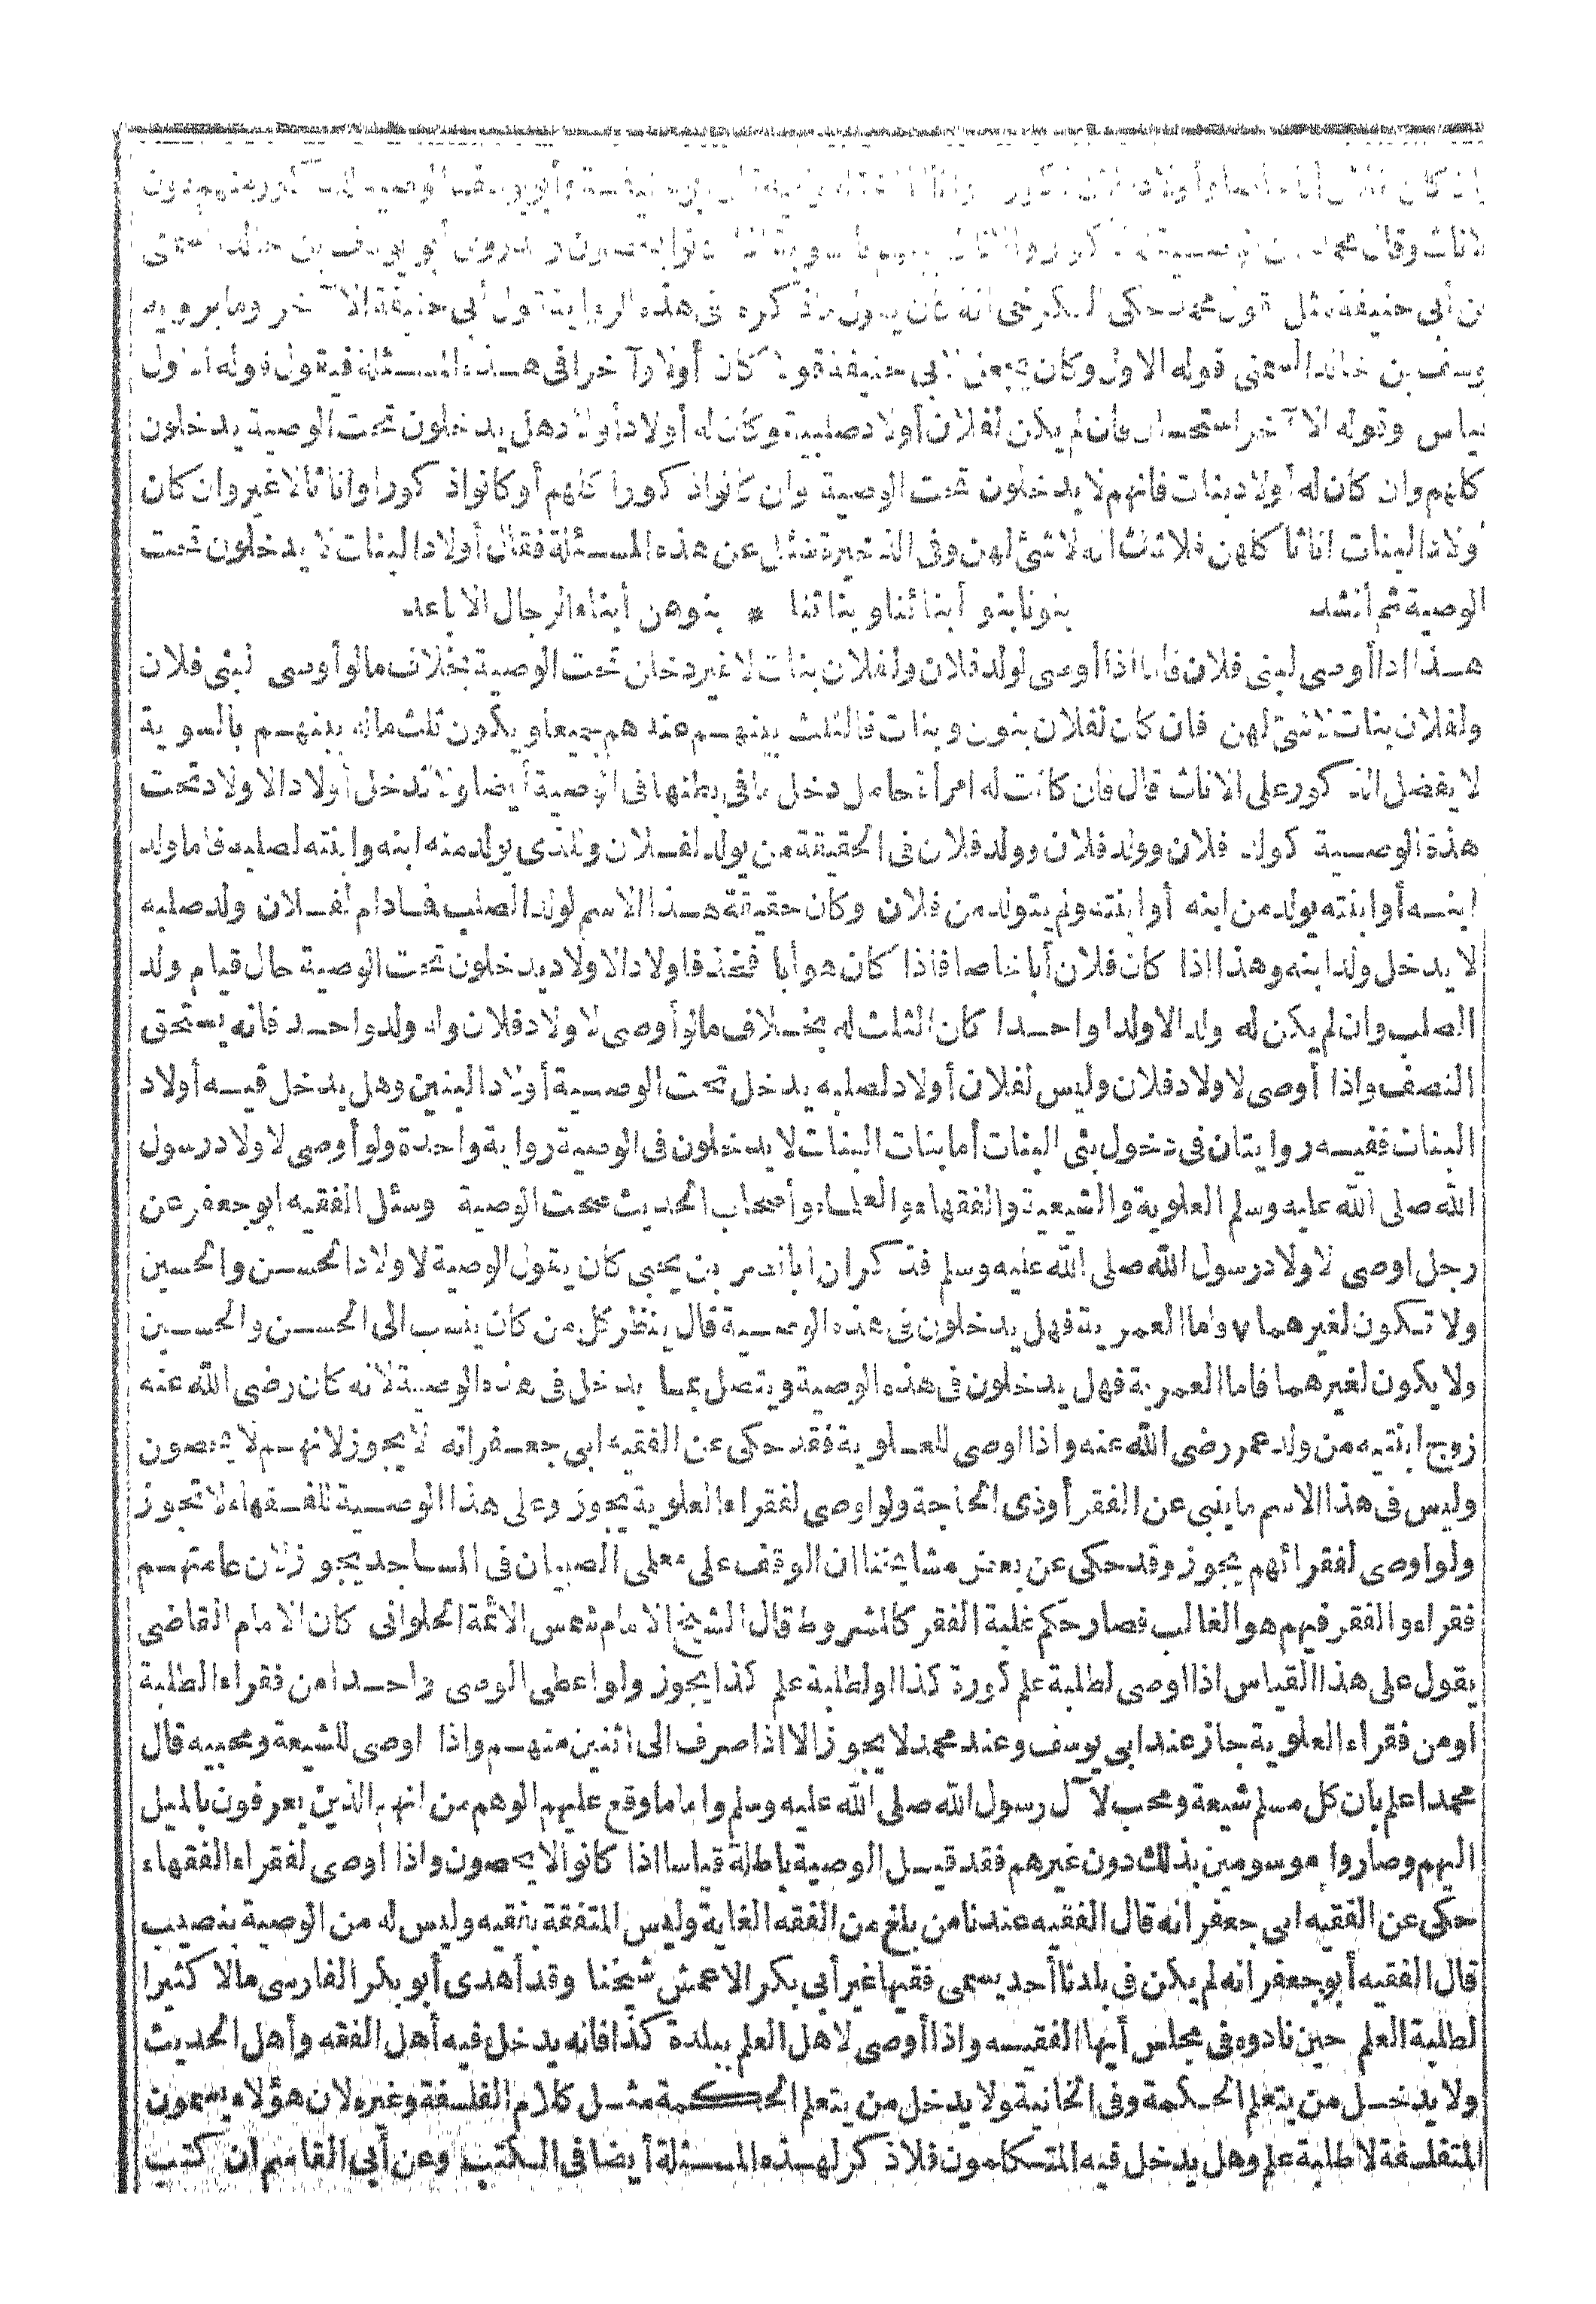 وان كان لفلان أولاد ذكور
لاناث وقال محمد الوصية للذكور والاناث بينهم بالسوية اذا كانوا يحصون وروى أبو يوسف بن خالد السمتى
عن أبى حنيفة مثل قول محمد حكى الكرخى انه كان يقول ماذكره فى هذه الرواية قول أبى حنيفة الآخر وما يرويه
يوسف بن خالد السمتى قوله الاول وكان يجعل لابى حنيفة قولا كان أولا وآخرا فى هذه المسئلة فيقول قوله الاول
قياس وقوله الآخر استحسان فان لم يكن لفلان أولاد صلبية وكان له أولاد أولاد هل يدخلون تحت الوصية يدخلون
كلهم وان كان له أولاد بنات فانهم لا يدخلون تحت الوصية وان كانوا ذكورا كلهم أو كانوا ذكورا واناثا لا غير وان كان
أولاد البنات اناثا كلهن فلا شك انه لا شئ لهن وفى الذخيرة سئل عن هذه المسئلة فقال أولاد البنات لا يدخلون تحت
الوصية ثم أنشد بنونا بنو أبنائنا وبناتنا * بنوهن أبناء الرجال الاباعد
هذا اذا أوصى لبنى فلان فاما اذا أوصى لولد فلان ولفلان بنات لا غير دخلن تحت الوصية بخلاف ما لو أوصى لبنى فلان
ولفلان بنات لا شئ لهن فان كان لفلان بنون وبنات فالثلث بينهم عندهم جميعا ويكون ثلث ماله بينهم بالسوية
لا يفضل الذكور على الاناث قال فان كانت له امرأة حامل دخل ما فى بطنها فى الوصية أيضا ولا تدخل أولاد الاولاد تحت
هذه الوصية كولد فلان وولد فلان وولد فلان فى الحقيقة من يولد لفلان والذى يولد منه ابنه وابنته لصلبه فاما ولد
ابنه أو ابنته يولد من ابنه أو ابنته ولم يتولد من فلان وكان حقيقة هذا الاسم لولد الصلب فمادام لفلان ولد صلبه
لا يدخل ولد ابنه وهذا اذا كان فلان أبا خاصا فاذا كان هو أبا فخذ فاولاد الاولاد يدخلون تحت الوصية حال قيام ولد
الصلب وان لم يكن له ولد الا ولدا واحدا كان الثلث له بخلاف ما لو أوصى لاولاد فلان وله ولد واحد فانه يستحق
النصف واذا أوصى لاولاد فلان وليس لفلان أولاد لصلبه يدخل تحت الوصية أولاد البنين وهل يدخل فيه أولاد
البنات ففيه روايتان فى دخول بنى البنات أما بنات البنات لا يدخلون فى الوصية رواية واحدة ولو أوصى لاولاد رسول
الله صلى الله عليه وسلم العلوية والشيعية والفقهاء والعلماء وأصحاب الحديث صحت الوصية وسئل الفقيه ابو جعفر عن
رجل اوصى لاولاد رسول الله صلى الله عليه وسلم فذكر ان ابا نصر بن يحيى كان يقول الوصية لاولاد الحسن والحسين
ولا تكون لغيرهما ٧ واما العمرية فهل يدخلون فى هذه الوصية قال ينظر كل من كان ينسب الى الحسن والحسين
ولا يكون لغيرهما فاما العمرية فهل يدخلون فى هذه الوصية ويتصل بهما يدخل فى هذه الوصية لانه كان رضى الله عنه
زوج ابنتيه من ولد عمر رضى الله عنه واذا اوصى للعلوية فقد حكى عن الفقيه ابى جعفر انه لا يجوز لانهم لا يحصون
وليس فى هذا الاسم ما ينبى عن الفقر أو ذى الحاجة ولو اوصى لفقراء العلوية يجوز وعلى هذا الوصية للفقهاء لا تجوز
ولو اوصى لفقرائهم يجوز وقد حكى عن بعض مشايخنا ان الوقف على معلمى الصبيان فى المساجد يجوز لان عامتهم
فقراء والفقر فيهم هو الغالب فصار حكم غلبة الفقر كالمشروط قال الشيخ الامام شمس الائمة الحلوانى كان الامام القاضى
يقول على هذا القياس اذا اوصى لطلبة علم كورة كذا او لطلبة علم كذا يجوز ولو اعطى الوصى واحدا من فقراء الطلبة
او من فقراء العلوية جاز عند ابى يوسف وعند محمد لا يجوز الا اذا صرف الى اثنين منهم واذا اوصى للشيعة ومحبيه قال
محمد اعلم بأن كل مسلم شيعة ومحب لآل رسول الله صلى الله عليه وسلم واما ما وقع عليهم الوهم من انهم الذين يعرفون بالميل
اليهم وصاروا موسومين بذلك دون غيرهم فقد قيل الوصية باطلة قياسا اذا كانوا لا يحصون واذا اوصى لفقراء الفقهاء
حكى عن الفقيه ابى جعفر انه قال الفقيه عندنا من بلغ من الفقه الغاية وليس المتفقة بفقيه وليس له من الوصية بنصيب
قال الفقيه أبو جعفر انه لم يكن فى بلدنا أحد يسمى فقيها غير أبى بكر الاعمش شيخنا وقد أهدى أبو بكر الفارسى مالا كثيرا
لطلبة العلم حين نادوه فى مجلس أيها الفقيه واذا أوصى لاهل العلم ببلدة كذا فانه يدخل فيه أهل الفقه وأهل الحديث
ولا يدخل من يتعلم الحكمة وفى الخانية ولا يدخل من يتعلم الحكمة مثل كلام الفلسفة وغيره لان هؤلاء يسمون
المتفلسفة لا طلبة علم وهل يدخل فيه المتكلمون فلا ذكر لهذه المسئلة أيضا فى الكتب وعن أبى القاسم ان كتب